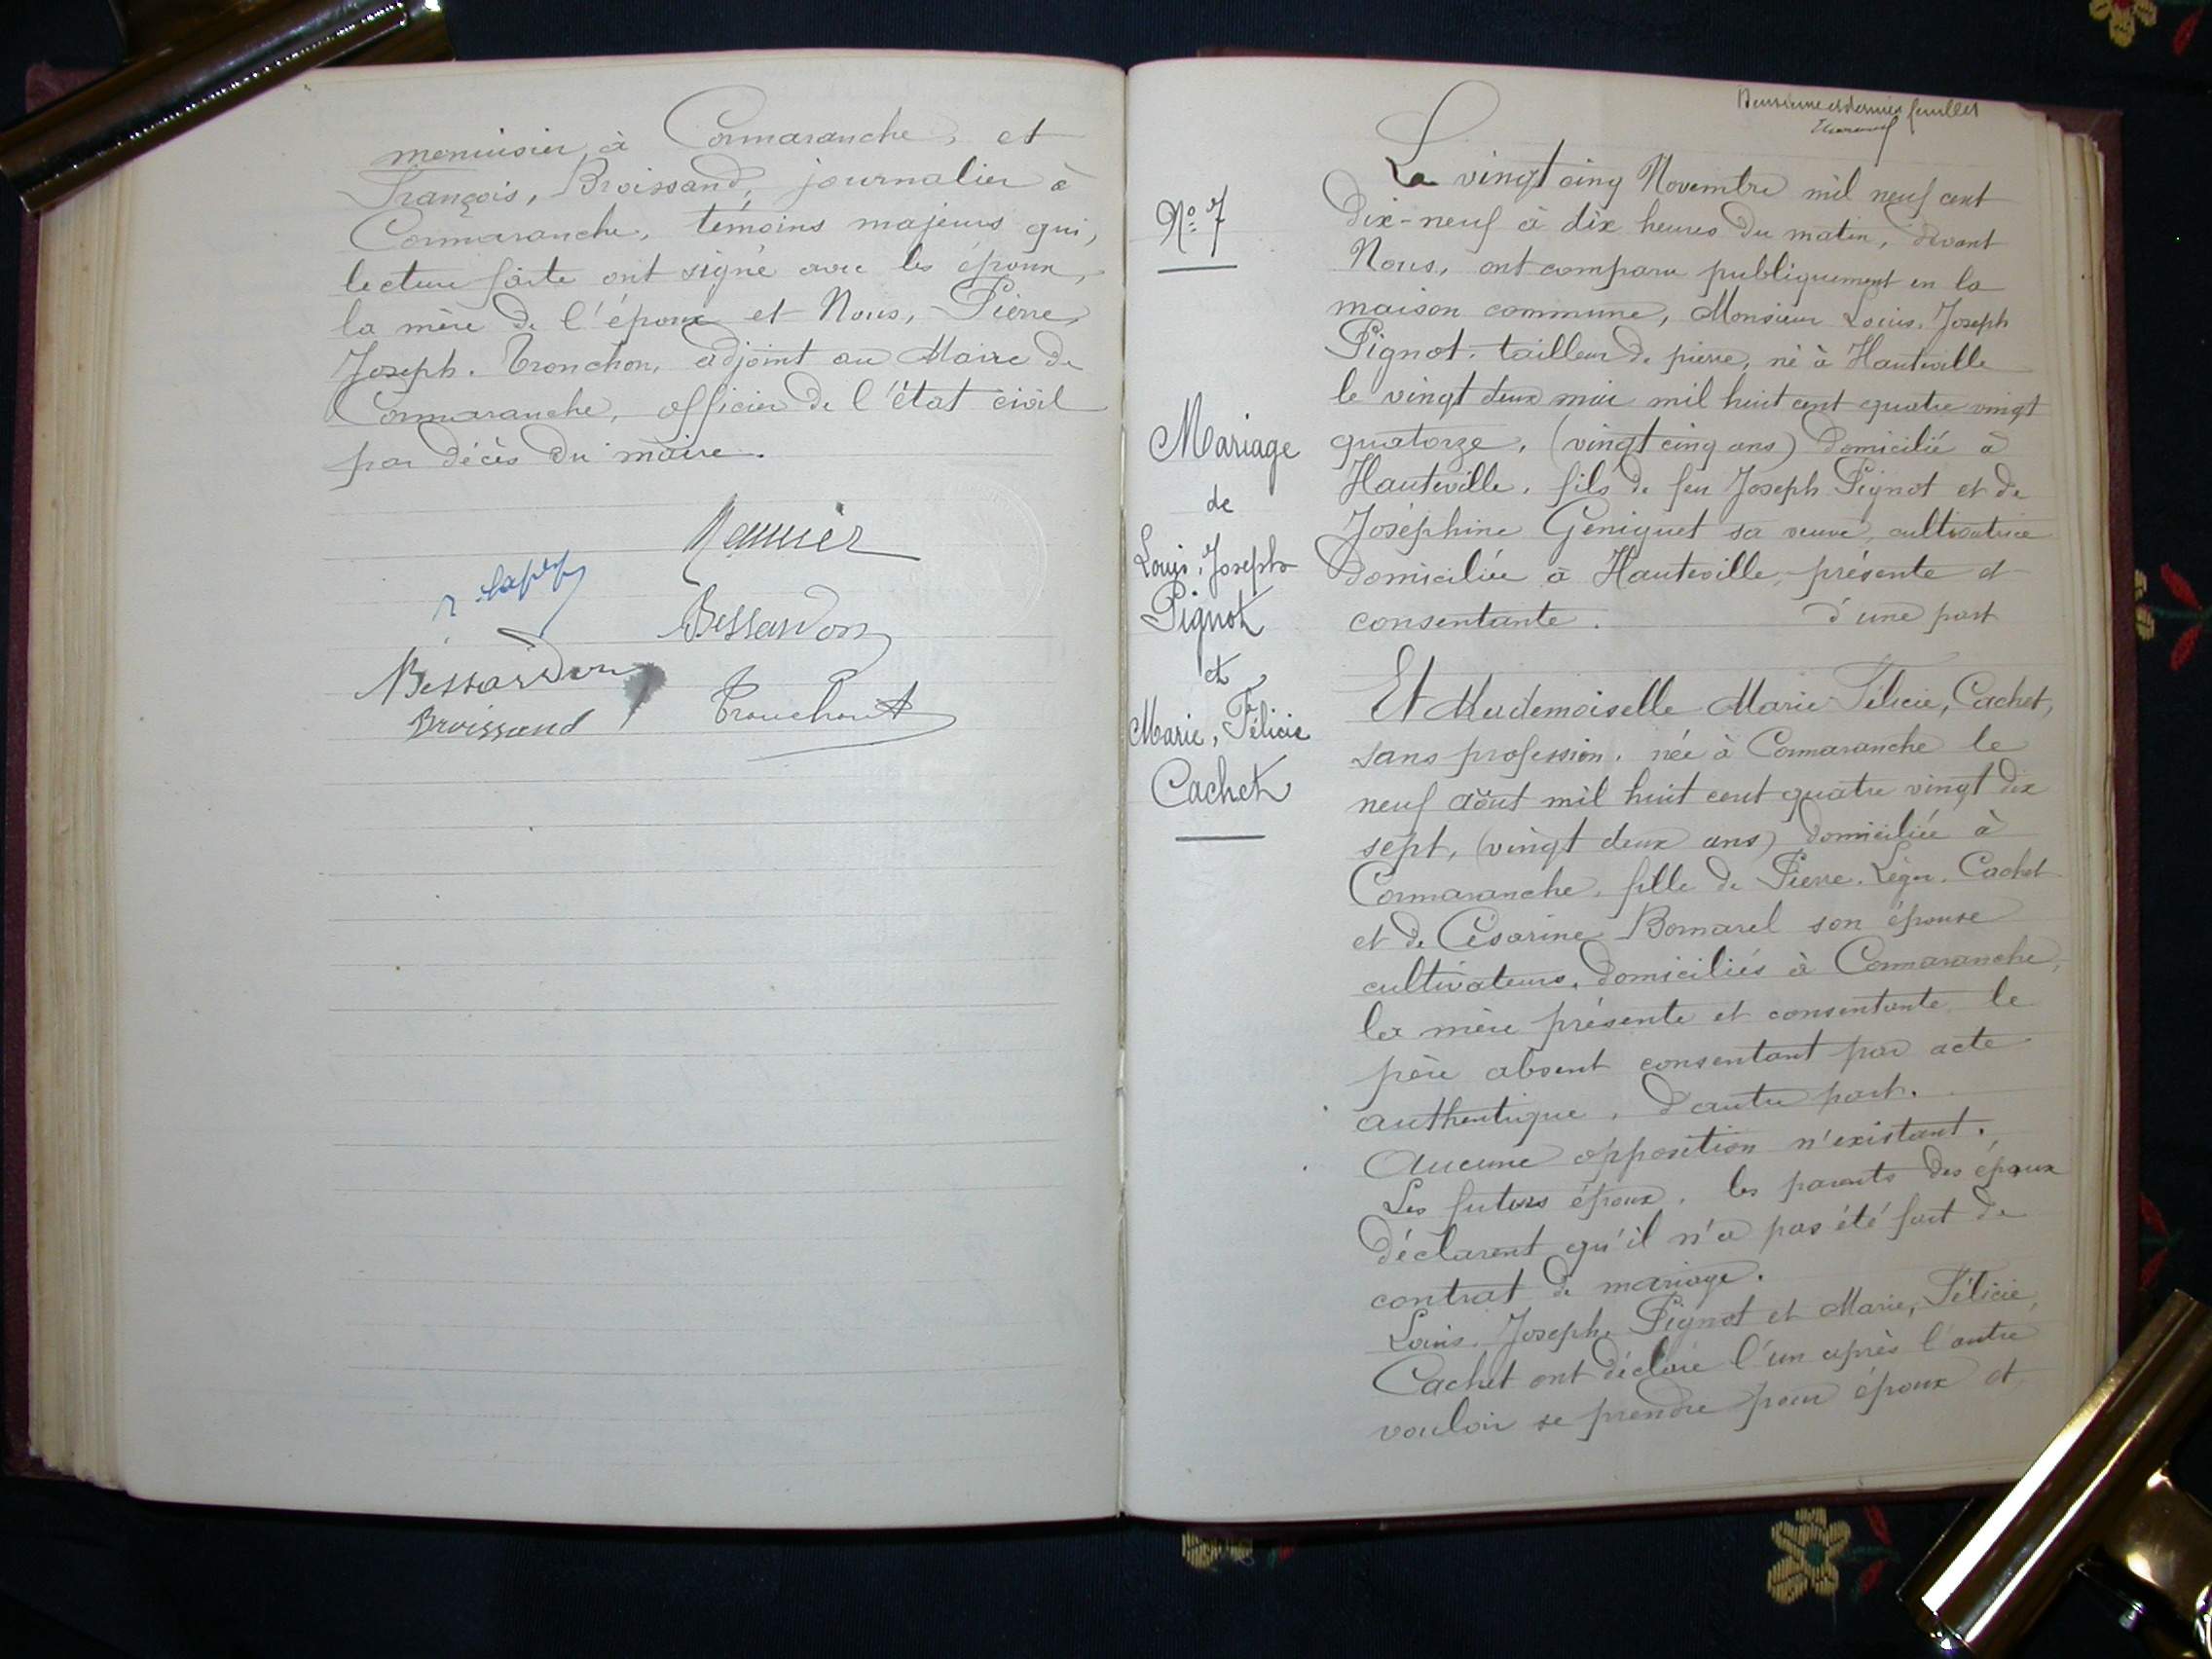 menuisier à Cormaranche, et
François, Broissand, journalier à
Cormaranche, témoins majeurs qui,
lecture faite ont signé avec les époux,
la mère de l'époux et Nous, Pierre
Joseph. Tronchon, adjoint au Maire de
Cormaranche, officier de l'état civil
par décès du maire.
Bessardon
Bessardon
Broissand
Tronchon
Deuxième et dernier feuillet
Le vingt cinq Novembre mil neuf cent
dix-neuf à dix heures du matin, devant
Nous, ont comparu publiquement en la
maison commune, Monsieur Louis, Joseph
Pignot, tailleur de pierre, né à Hauteville
le vingt deux mai mil huit cent quatre vingt
quatorze, (vingt cinq ans) domicilié à
Hauteville, fils de feu Joseph Pignot et de
Joséphine Géniquet sa veuve, cultivatrice
domiciliée à Hauteville, présente et
consentante. d'une part
Et Mademoiselle Marie Félicie, Cachet,
sans profession, née à Cormaranche le
neuf août mil huit cent quatre vingt dix
sept, (vingt deux ans) domiciliée à
Cormaranche, fille de Pierre. Léger. Cachet
et de Césarine Bornarel son épouse
cultivateurs, domiciliés à Cormaranche,
la mère présente et consentante, le
père absent consentant par acte
authentique, d'autre part.
Aucune opposition n'existant.
Les futurs époux, les parents des époux
déclarent qu'il n'a pas été fait de
contrat de mariage.
Louis. Joseph. Pignot et Marie, Félicie,
Cachet ont déclaré l'un après l'autre
vouloir se prendre pour époux et
No. 7
Mariage
de
Louis, Joseph
Pignot
et
Marie, Félicie
Cachet